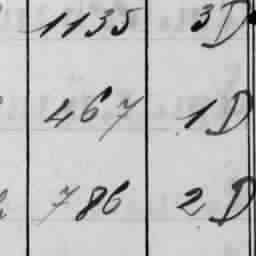 1135 3D
467 1D
786 2D